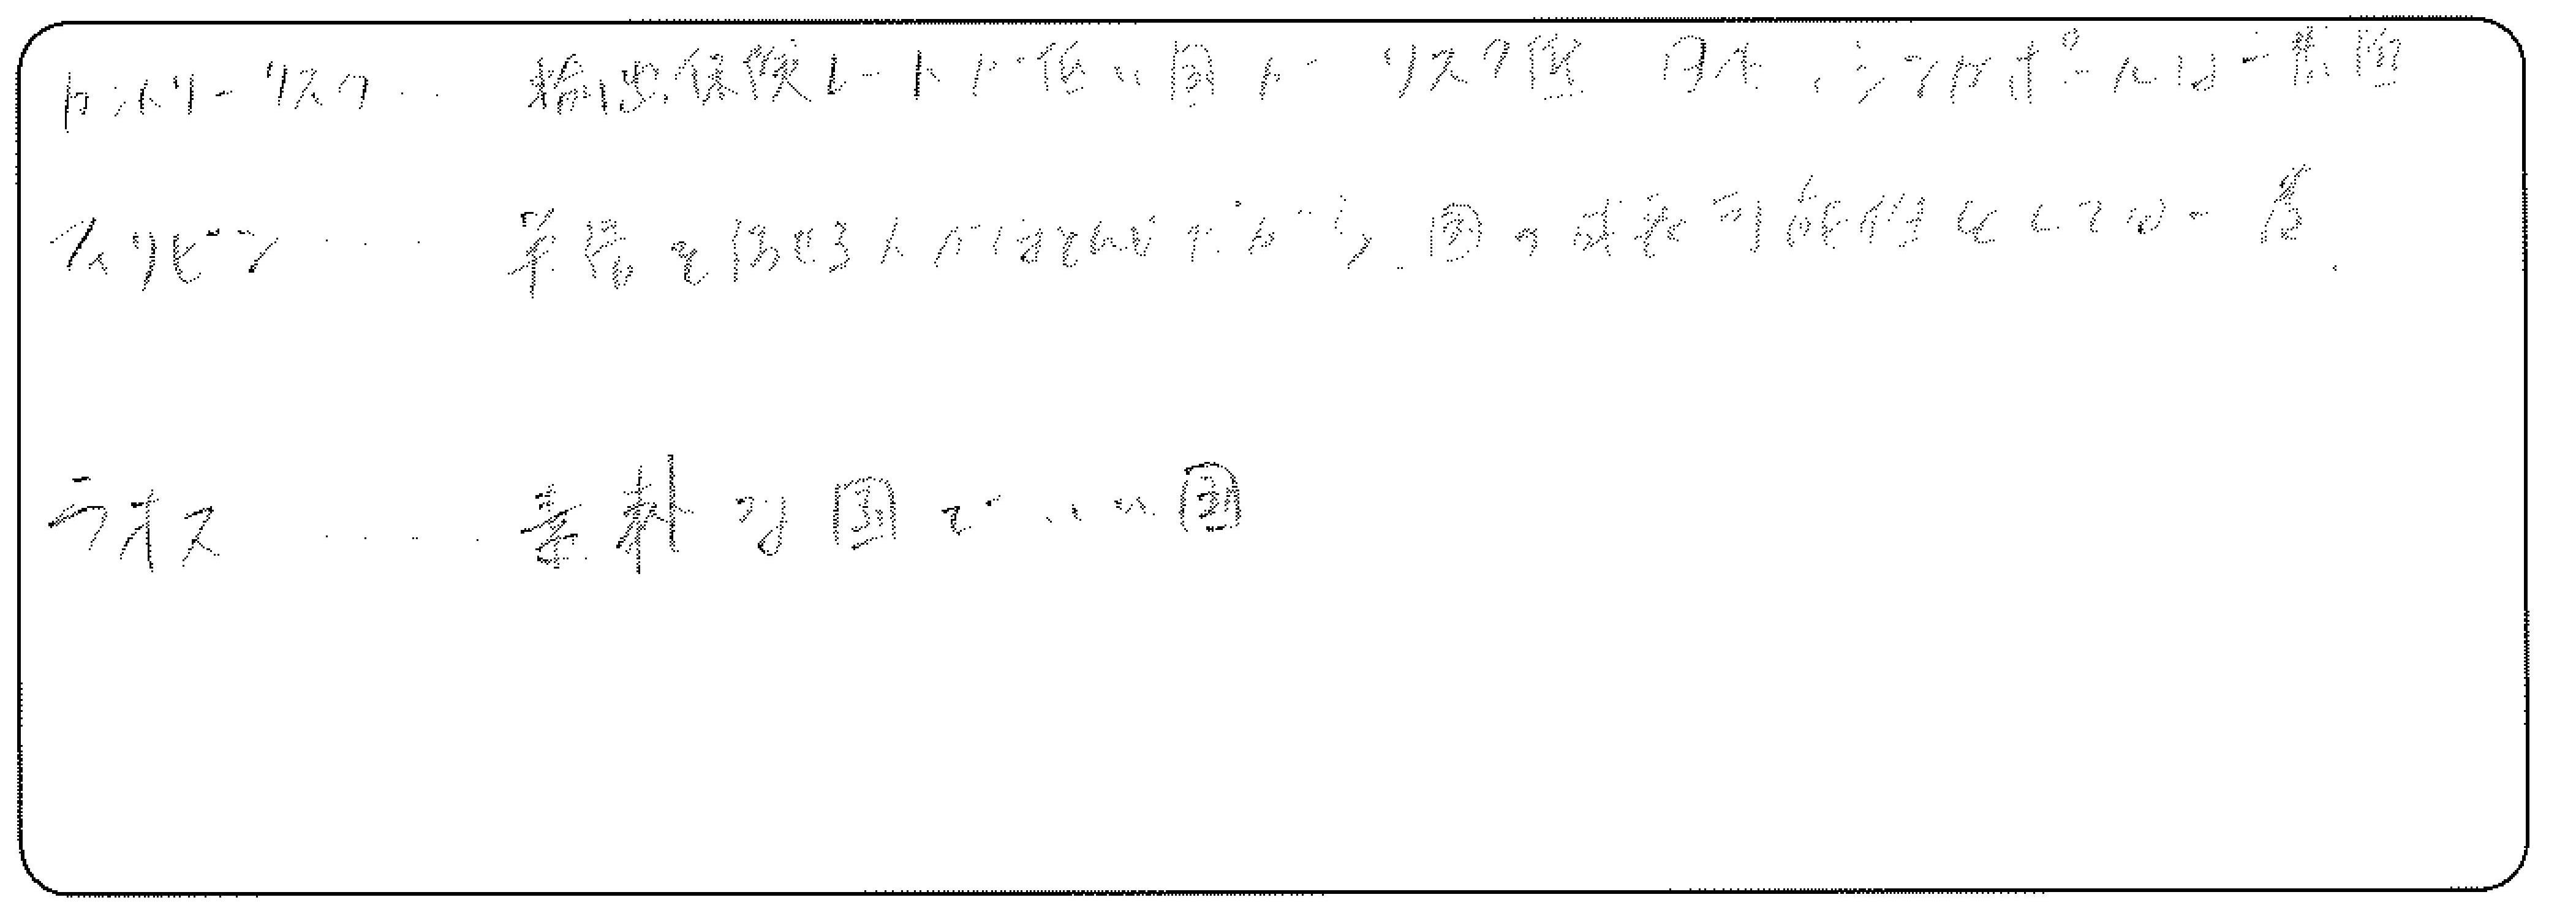 カントリーリスク‥ 輸出保険レートが低い国が リスク国 日本、シンガポールは一番国
フィリピン‥‥ 英語を話せる人がほとんどだから、国の成長可能性としては一番.
ラオス ‥‥ 素朴な国でいい国